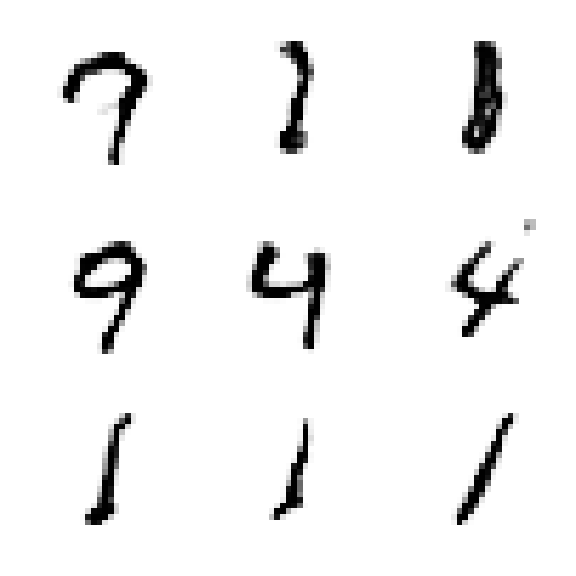 7 2 8
9 4 4
1 1 1